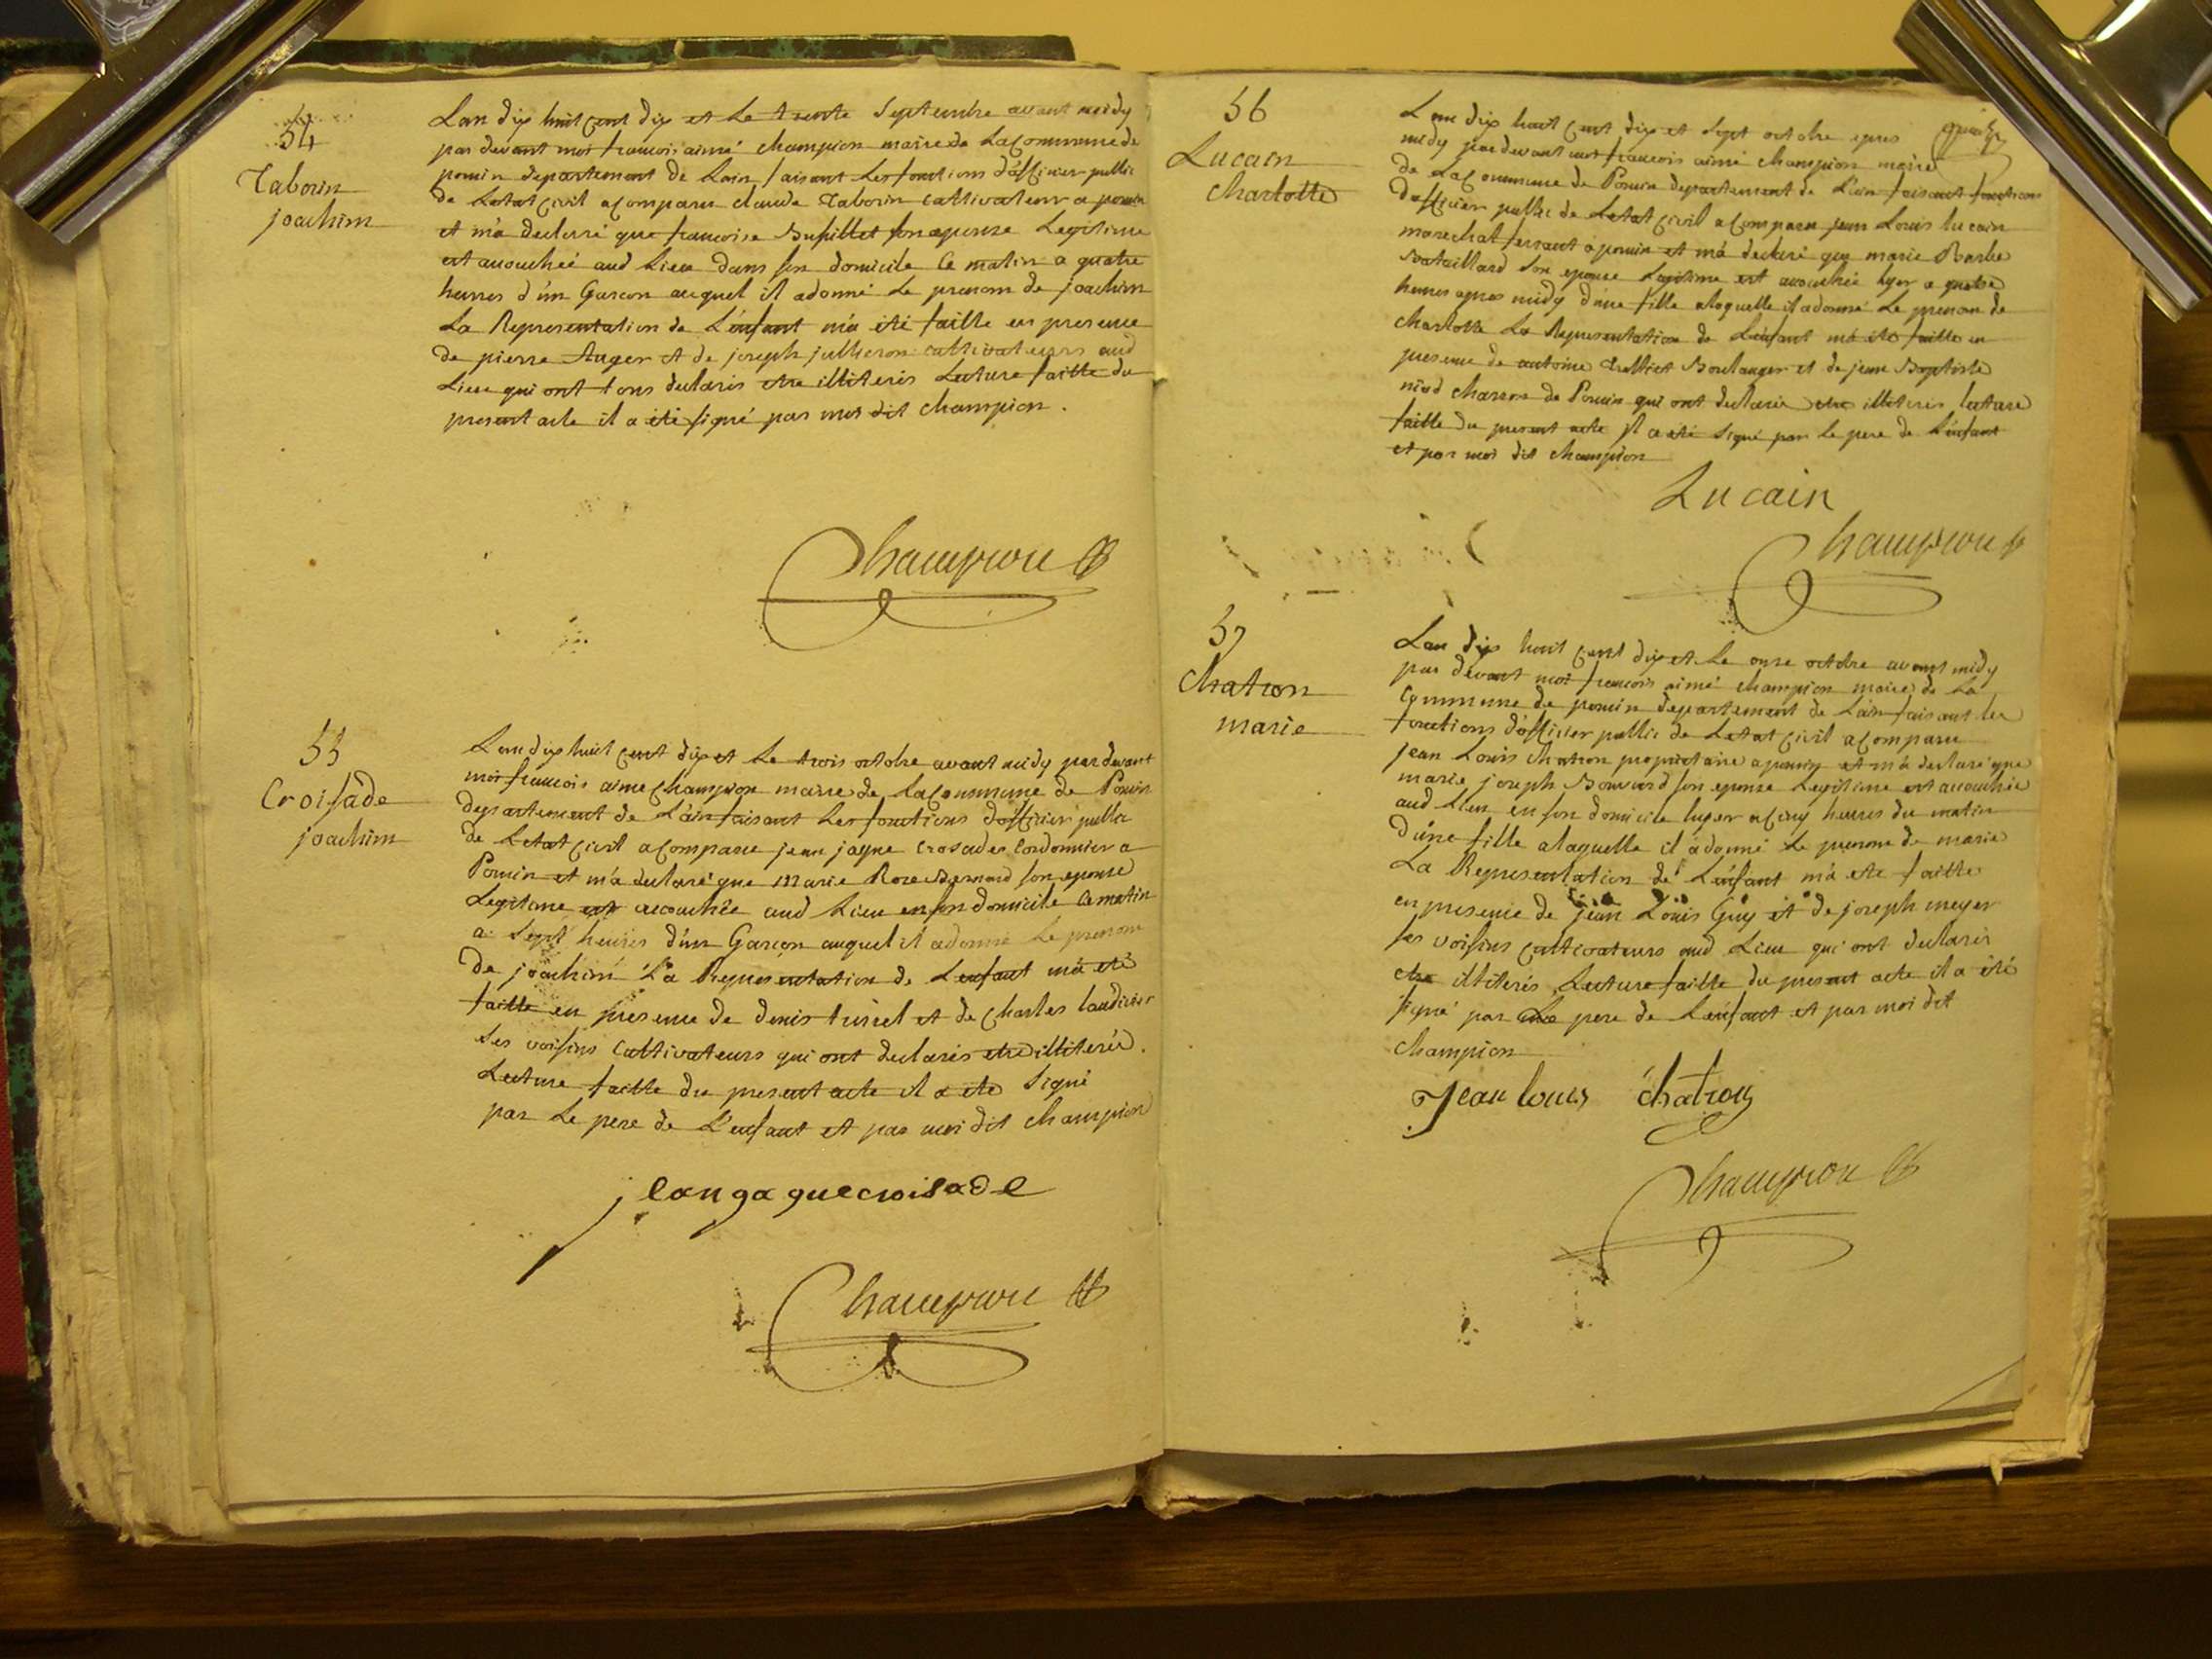 54
Taborin
joachim
Lan dix huit cent dix et Le trente Septembre avant midy
par devant moi francois aimé champion maire de La Commune de
poncin departement de Lain faisant Les fonctions d'officier public
de Letat Civil a Comparu claude Taborin cultivateur a poncin
et m'a declaré que francoise son epouse Legitime
est accouchée aud Lieu dans son domicile Ce matin a quatre
heures d'ún Garcon auquel il a donné Le prenom de joachim
La Representation de L'énfant m'a été faitte en presence
de pierre Auger et de joseph jullieron cultivateurs aud
Lieu qui ont tous declarés etre illiterés Lecture faitte du
present acte il a été signé par moi dit champion .
Champion
55
Croisade
joachim
Lan dix huit cent dix et Le trois octobre avant midy par devant
moi francois aimé champion maire de La Commune de Poncin
departement de L'ain faisant Les fonctions d'officier public
de Letat Civil a Comparu jean jaque Crosades Cordonnier a
Poncin et m'a declaré que Marie Rose Bernard son epouse
Legitime est accouchée aud Lieu en son domicile Ce matin
a Sept heures d'un Garcon auquel il a donné Le prenom
de joachim La Representation de L'enfant m'a eté
faitte en presence de denis et de Charles
ses voisins Cultivateurs qui ont declarés etre illiterés .
Lecture faitte du present acte il a eté Signé
par Le pere de L'enfant et par moi dit champion
jean gaque croisade
Champion
56
Lucain
Charlotte
Lan dix huit Cent dix et Sept octobre apres
midy par devant moi francois aimé champion maire
de La Commune de Poncin departement de L'ain faisant fonctions
d'officier public de Letat Civil a Comparu jean Louis lucain
marechal ferrant a poncin et m'a declaré que marie Barbe
Bataillard son epouse Legitime est accouchée hyer a quatre
heures apres midy d'une fille a laquelle il a donné Le prenom de
charlotte La Representation de L'enfant m'a été faitte en
presence de antoine Boulanger et de jean Baptiste
niod charron de Poncin qui ont declarés etre illiterés lecture
faitte du present acte Il a eté Signé par le pere de L'énfant
et par moi dit champion
Lucain
Champion
57
Chatron
marie
Lan dix huit cent dix et Le onze octobre avant midy
par devant moi francois aimé champion maire de La
Commune de poncin departement de L'ain faisant les
fonctions d'officier public de Letat Civil a Comparu
jean Louis chatron proprietaire a poncin et m'a declaré que
marie joseph Bouvard son epouse Legitime est accouchée
aud Lieu en son domicile hyer a Cinq heures du matin
d'úne fille a laquelle il a donné Le prenom de marie
La Representation de L'énfant m'a eté faitte
en presence de jean Louis Guy et de joseph meyer
ses voisins Cultivateurs aud Lieu qui ont declarés
etre illiterés Lecture faitte du present acte il a été
signé par Le pere de L'énfant et par moi dit
champion
Jean louis chatron
Champion